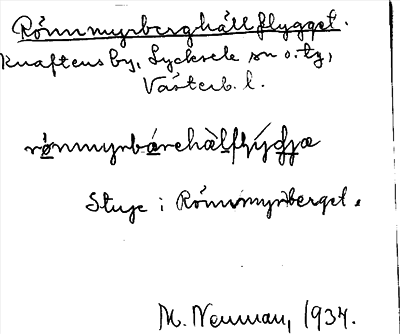 Rönnmyrberghällflygget.
Knaftens by, Lycksele sn o. tg,
Västerb. l.
Stuje i Rönnmyrberget.
M. Neuman, 1934.